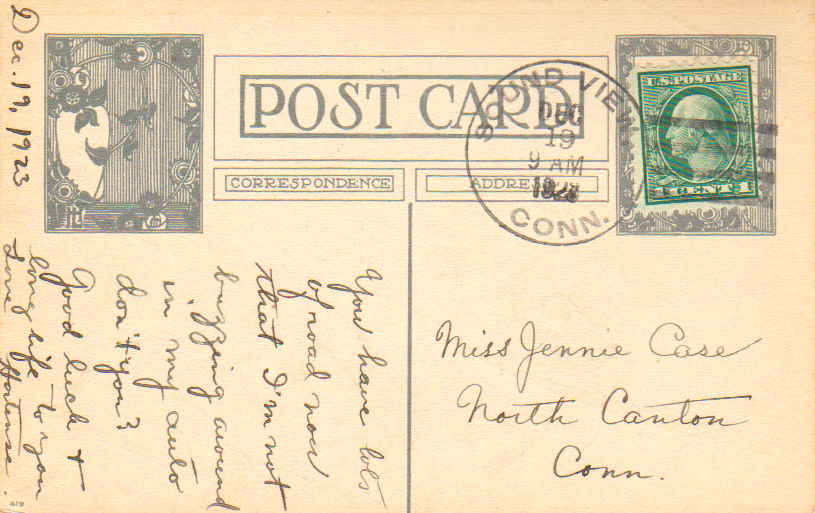 Dec. 19, 1923
POST CARD
CORRESPONDENCE
ADDRE
SOUND VIEW,
DEC
19
9 AM
1923
CONN.
U.S. POSTAGE
CENT
You have lots
of road now
that I'm not
buzzing around
in my auto
don't you?
Good luck &
long life to you
Love Hortense.
Miss Jennie Case
North Canton
Conn.